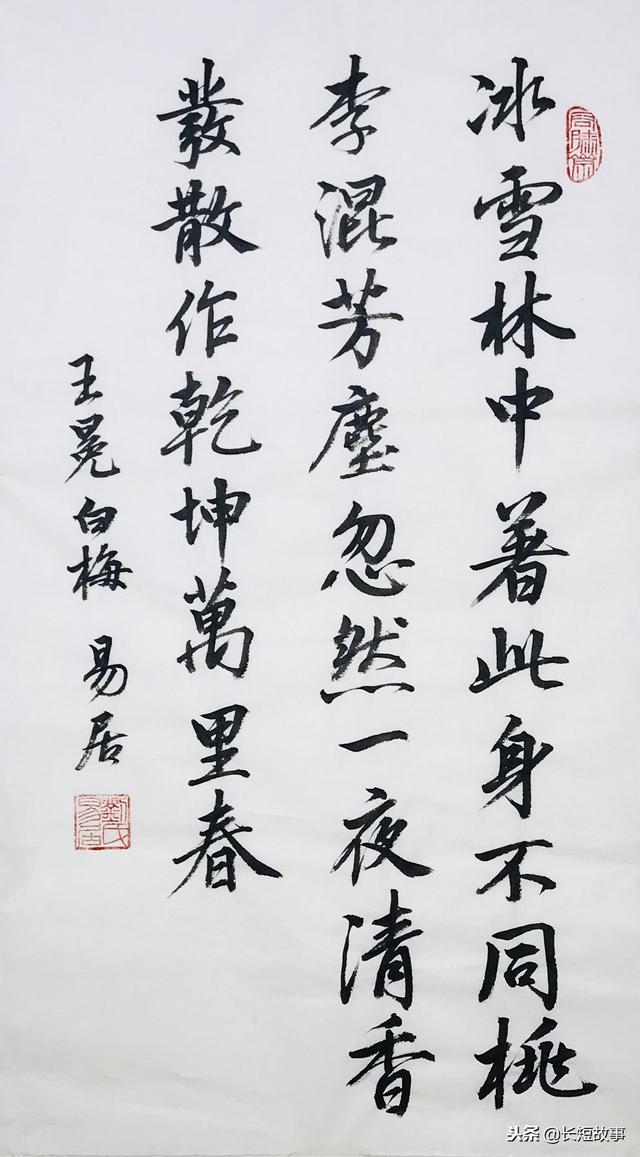 冰雪林中著此身不同桃
李混芳塵忽然一夜清香
發散作乾坤萬里春
王冕白梅 易居
劉氏易居
头条 @长短故事